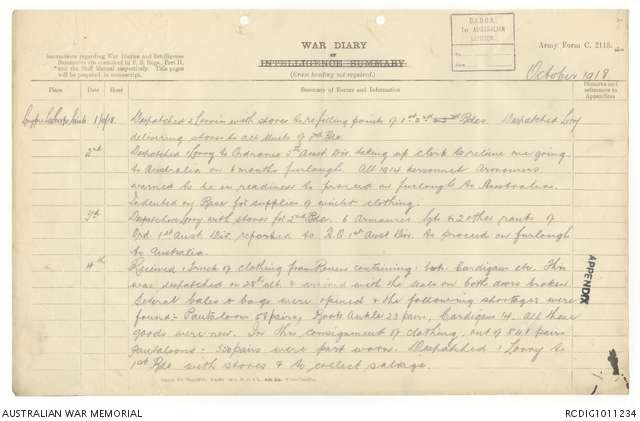 WAR DIARY
or
INTELLIGENCE SUMMARY
(Erase heading not required.)
Instructions regarding War Diaries and Intelligence
Summaries are contained in F. S. Regs., Part II.
and the Staff Manual respectively. Title pages
will be prepared in manuscript.
D.A.D.O.S.
1st AUSTRALIAN
DIVISION.
Army Form C. 2118.
October 1918
Place Date Hour Summary of Events and Information Remarks and
references to
Appendices
1/10/18. Despatched 2 Lorries with stores to refilling points of 1st 2nd Bdes. Despatched Lorry
delivering stores to all Units of 3rd Bde.
2nd Despatched 1 Lorry to Ordnance 5th Aust Div. taking up clerk to relieve one going
to Australia on 6 months furlough. All 1914 personnel Armourers
warned to be in readiness to proceed on furlough to Australia.
Indented on Base for supplies of winter clothing.
3rd Despatched Lorry with stores for 2nd Bde. 6 Armourer Sgts & 2 other ranks of
Ord. 1st Aust Div. reported to H.Q. 1st Aust Div. to proceed on furlough
to Australia.
4th Received 1 truck of clothing from Rouen containing Cardigans etc. This
was despatched on 28th ult. & arrived with the seals on both doors broken
Several bales & bags were opened & the following shortages were
found:- Pantaloons 58 pairs, Boots Ankle 23 pairs, Cardigans 14. All these
goods were new. In this consignment of clothing, out of 848 pairs
pantaloons - 550 pairs were part worn. Despatched 1 Lorry to
1st Bde with stores & to collect salvage.
APPENDIX
AUSTRALIAN WAR MEMORIAL
RCDIG1011234